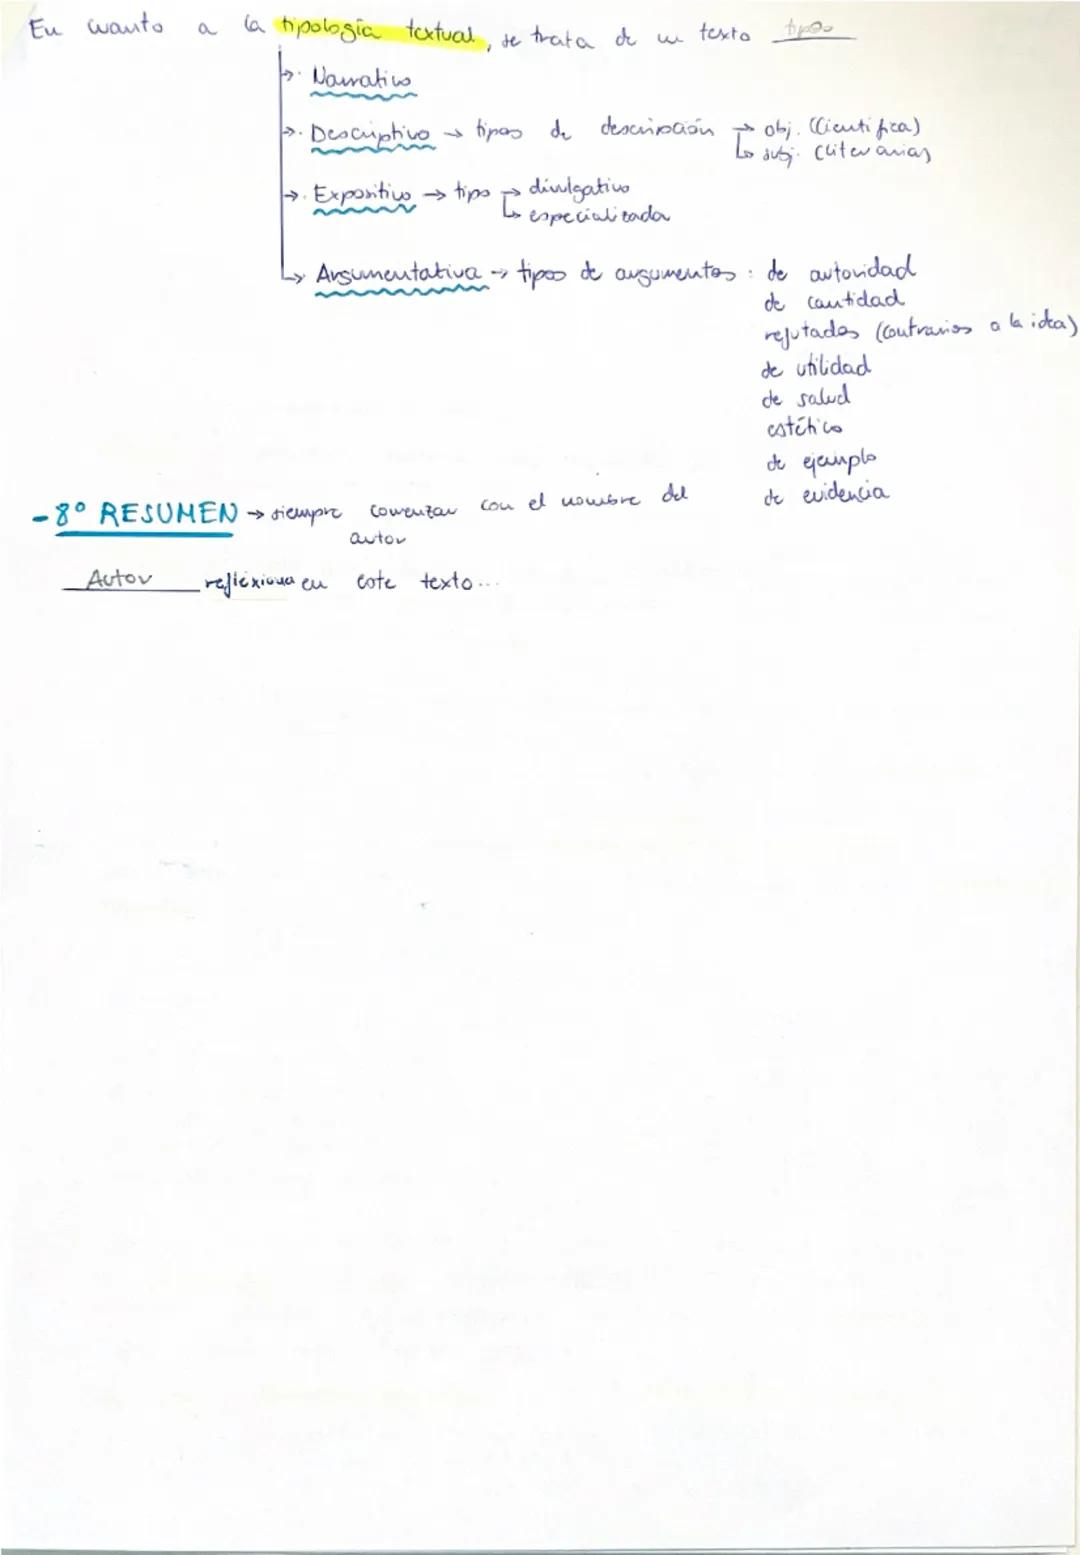 En cuanto a la tipología textual, se trata de un texto tipos
→· Narrativo
→· Descriptivo → tipos de descripción → obj. (Científica)
↳ subj. (literarias)
→· Expositivo → tipo → divulgativo
↳ especializada
↳ Argumentativa → tipos de argumentos : de autoridad
de cantidad
refutados (contrarios a la idea)
de utilidad
de salud
estético
de ejemplo
de evidencia
- 8º RESUMEN → siempre comenzar con el nombre del
autor
Autor reflexiona en este texto...